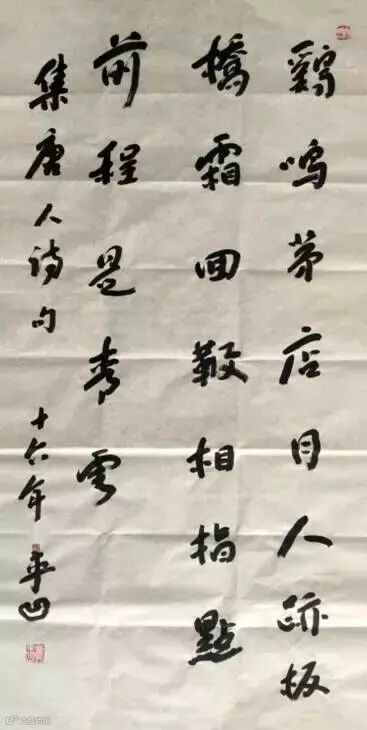 鷄鳴茅店月人跡板
橋霜回鞭相指點
前程是青雲
集唐人詩句
十六年 平凹